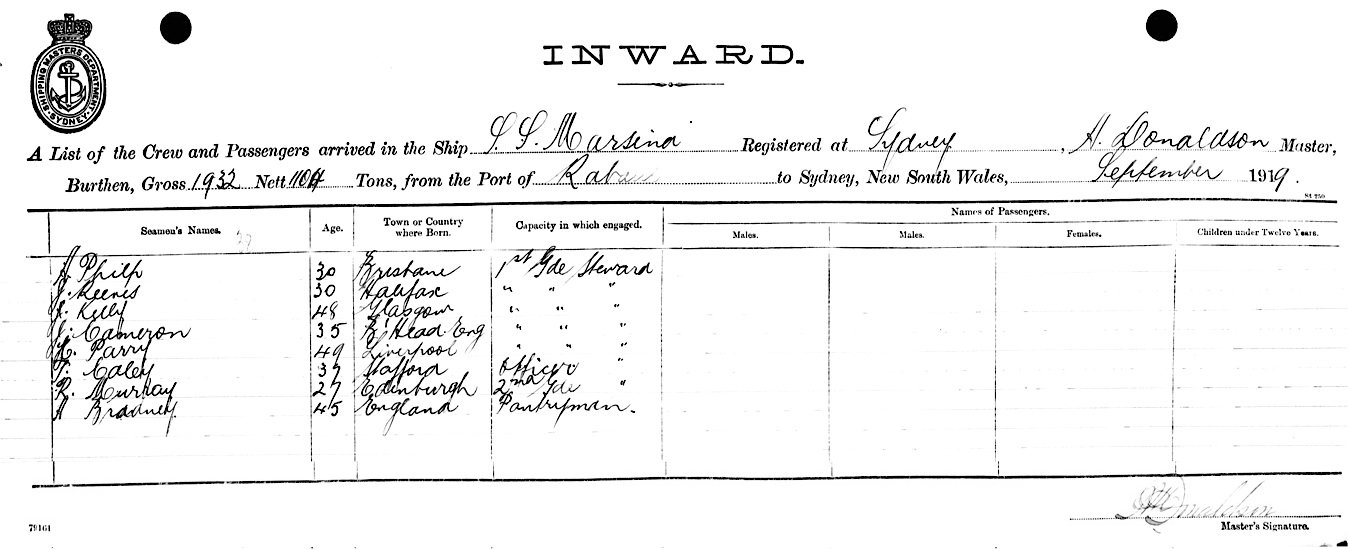 SHIPPING MASTERS DEPARTMENT · SYDNEY ·
INWARD.
A List of the Crew and Passengers arrived in the Ship S. S. Marsina Registered at Sydney, H. Donaldson Master,
Burthen, Gross 1932 Nett 1104 Tons, from the Port of to Sydney, New South Wales, September 1919.
S4 250
Names of Passengers.
Seamen's Names. 37 Age. Town or Country where Born. Capacity in which engaged. Males. Males. Females. Children under Twelve Years.
A. Philp 30 Brisbane 1st Gde Steward
J. Keenes 30 Halifax " " "
J. Kelly 48 Glasgow " " "
J. Cameron 35 B'Head. Eng " " "
H. Parry 49 Liverpool " " "
T. Caley 37 Stafford Officers "
R. Murray 27 Edinburgh 2nd Gde "
A Bradney. 45 England Pantryman.
H Donaldson
Master's Signature.
79161